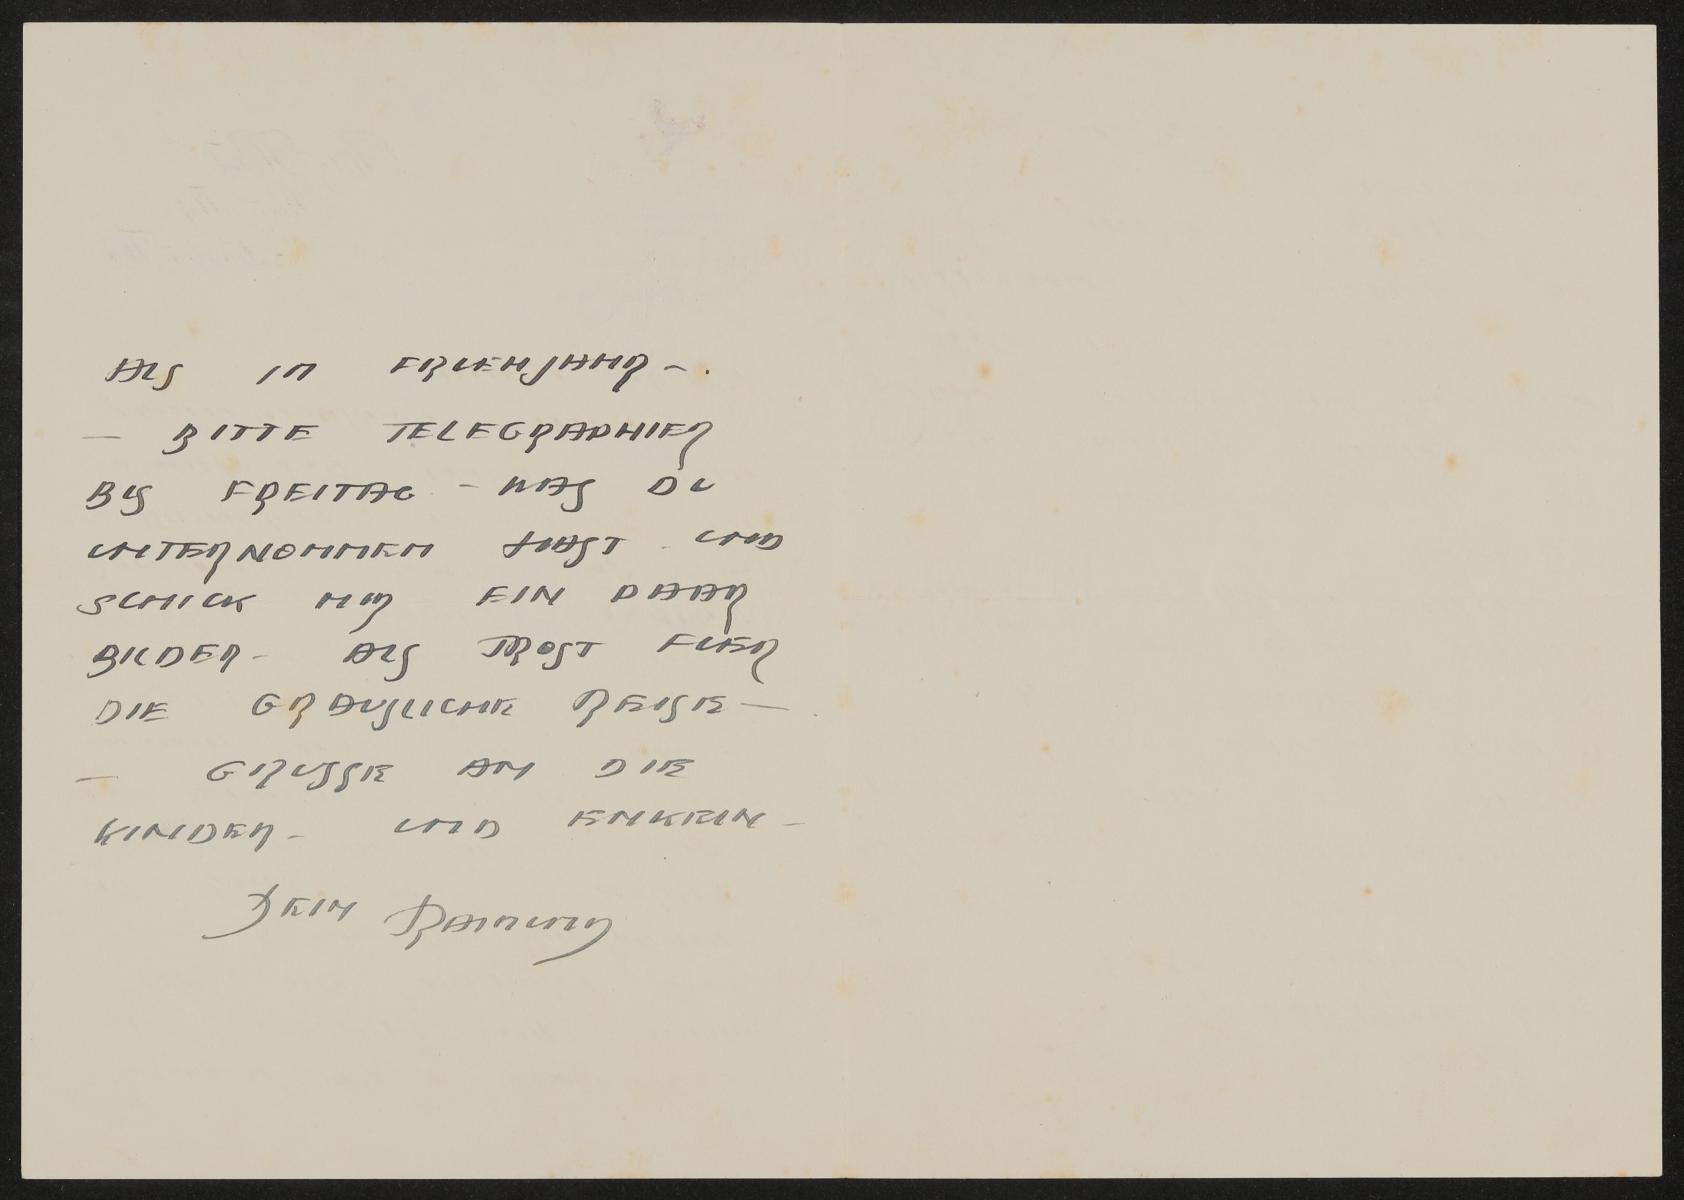 ALS IM FRUEHJAHR - .
— BITTE TELEGRAPHIER
BIS FREITAG - WAS DU
UNTERNOMMEN HAST UND
SCHICK MIR EIN PAAR
BILDER - ALS TROST FUER
DIE GRAUSLICHE REISE —
— GRUSSE AN DIE
KINDER - UND ENKELIN -
DEIN